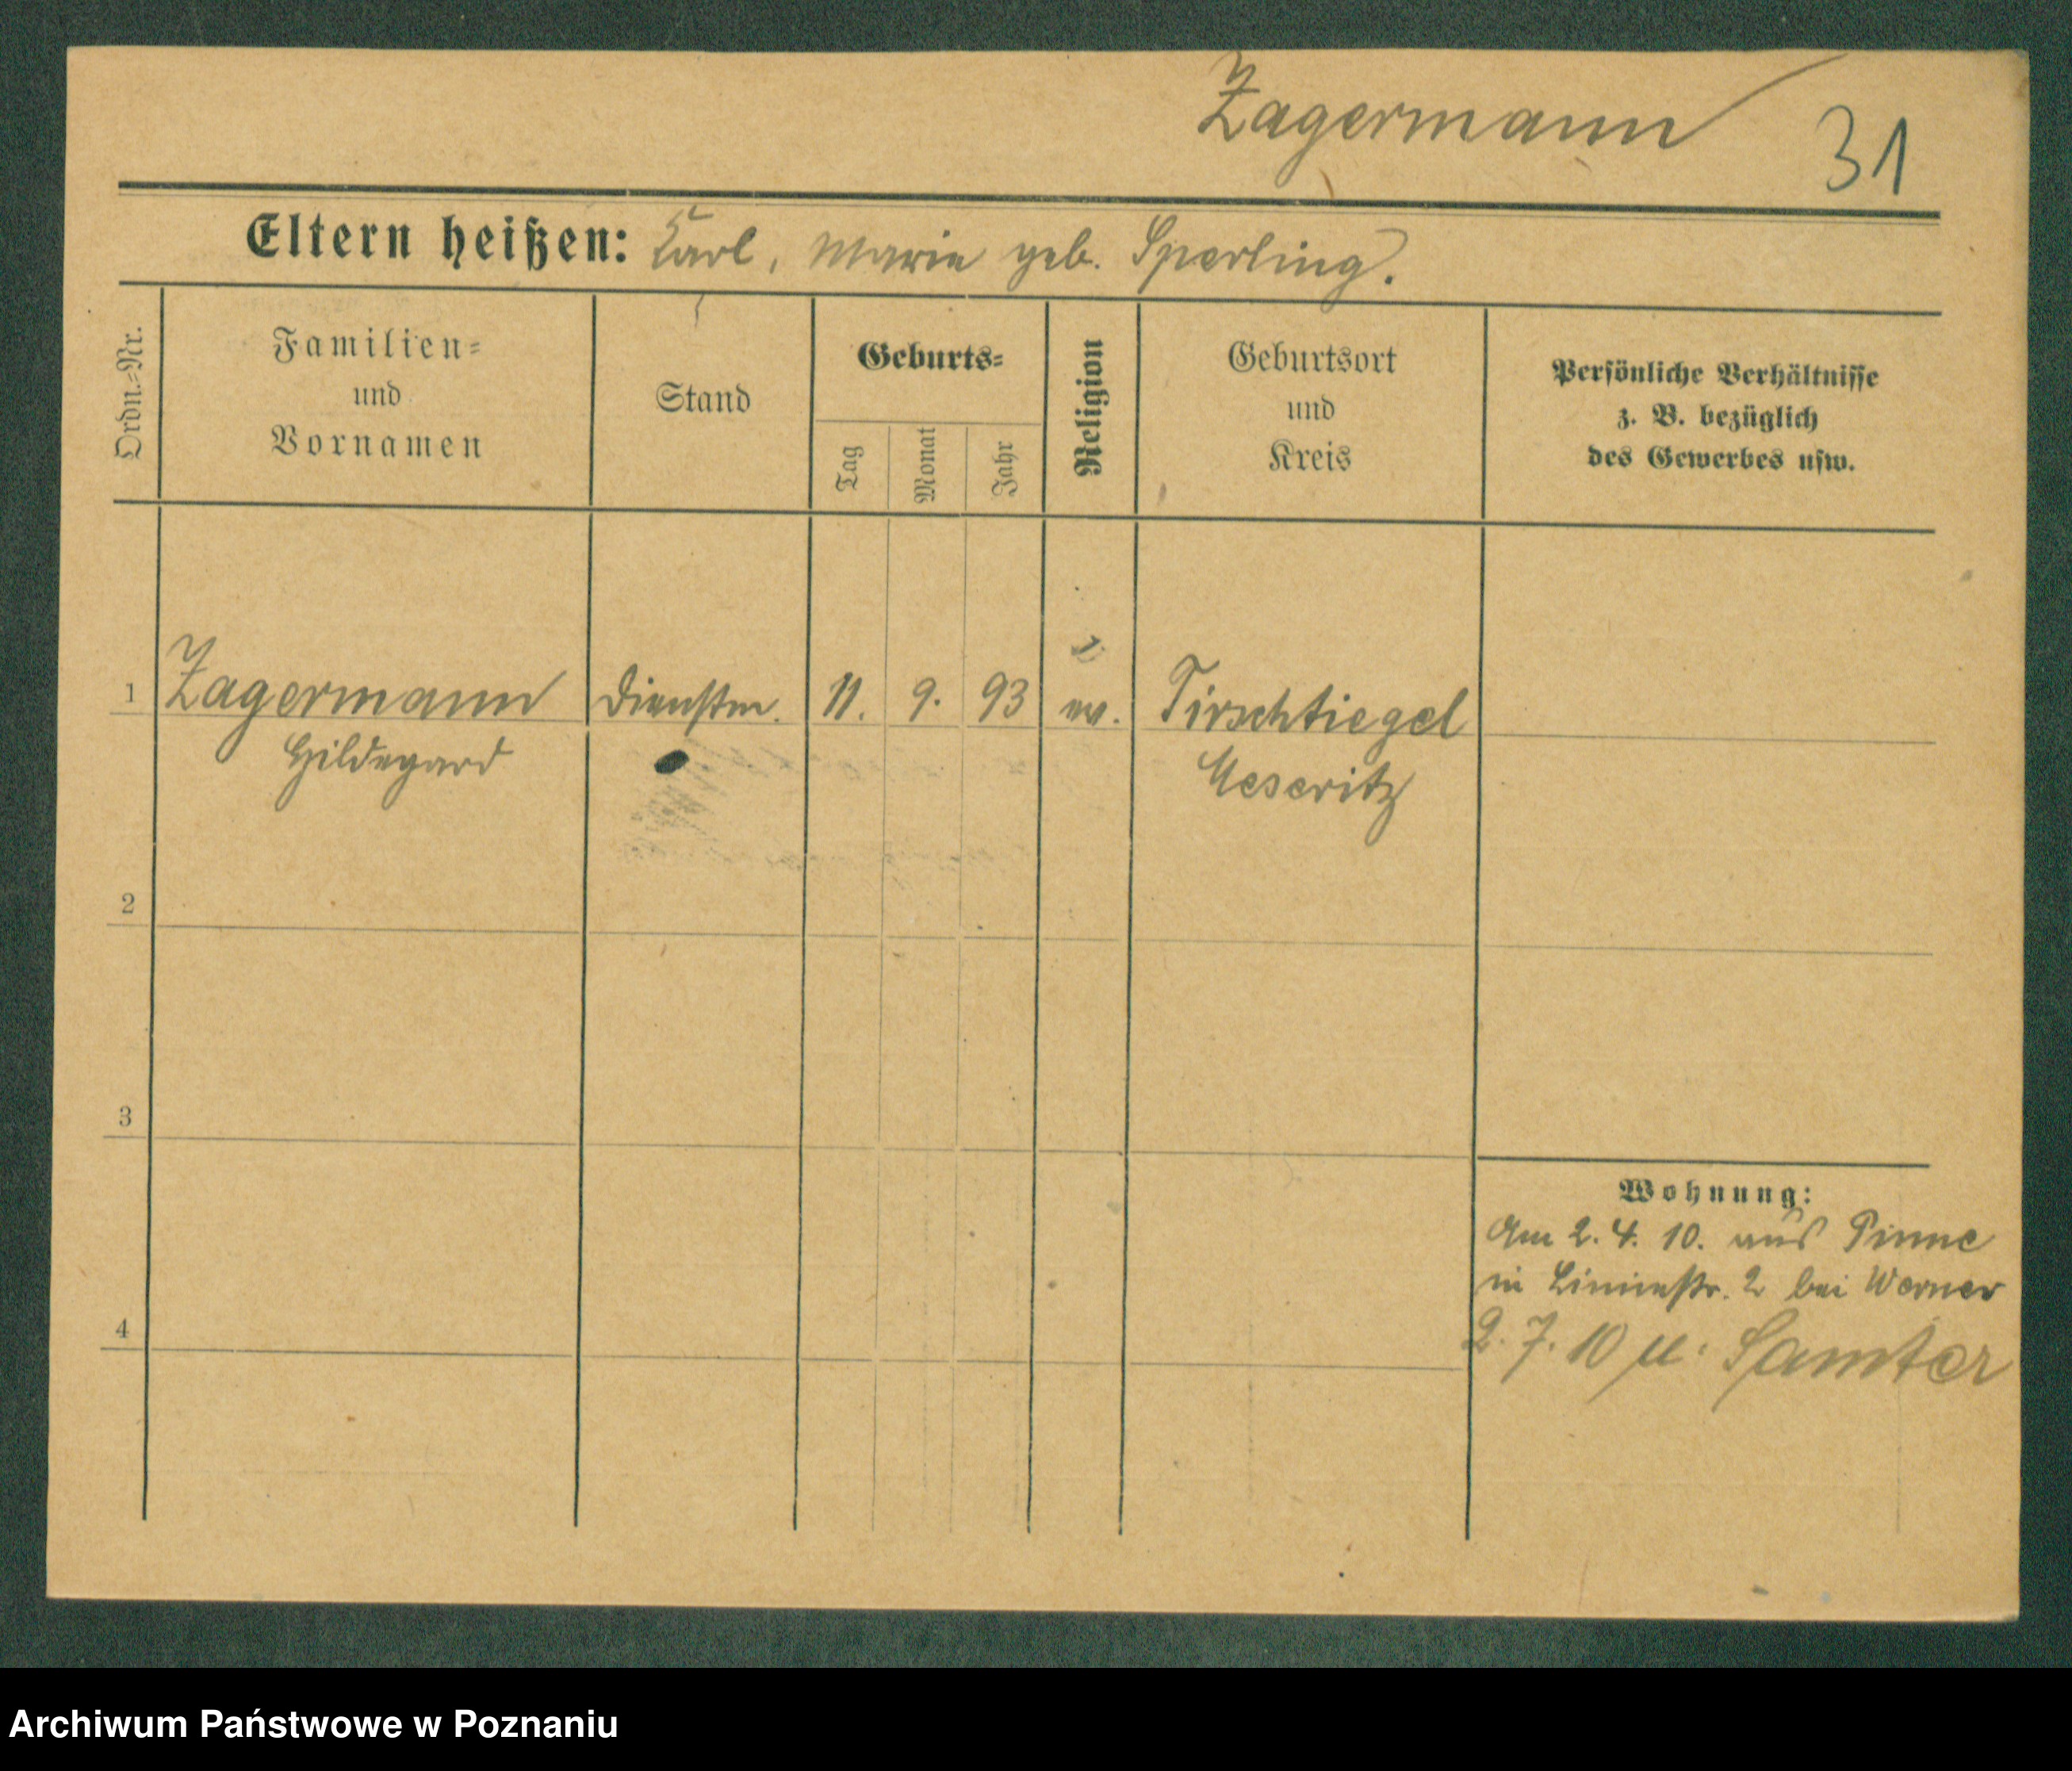 Zagermann
31
Eltern heißen: Karl, Marie geb. Sperling.
Ordn.=Nr.
Familien=
und
Vornamen
Stand
Geburts=
Tag
Monat
Jahr
Religion
Geburtsort
und
Kreis
Persönliche Verhältnisse
z. B. bezüglich
des Gewerbes usw.
1 Zagermann Dienstm. 11. 9. 93 ev. Tirschtiegel
Hildegard Meseritz
2
3
Wohnung:
Am 2. 4. 10. aus Pinne
in Linienstr. 2 bei Werner
4
2. 7. 10 n. Samter
Archiwum Państwowe w Poznaniu